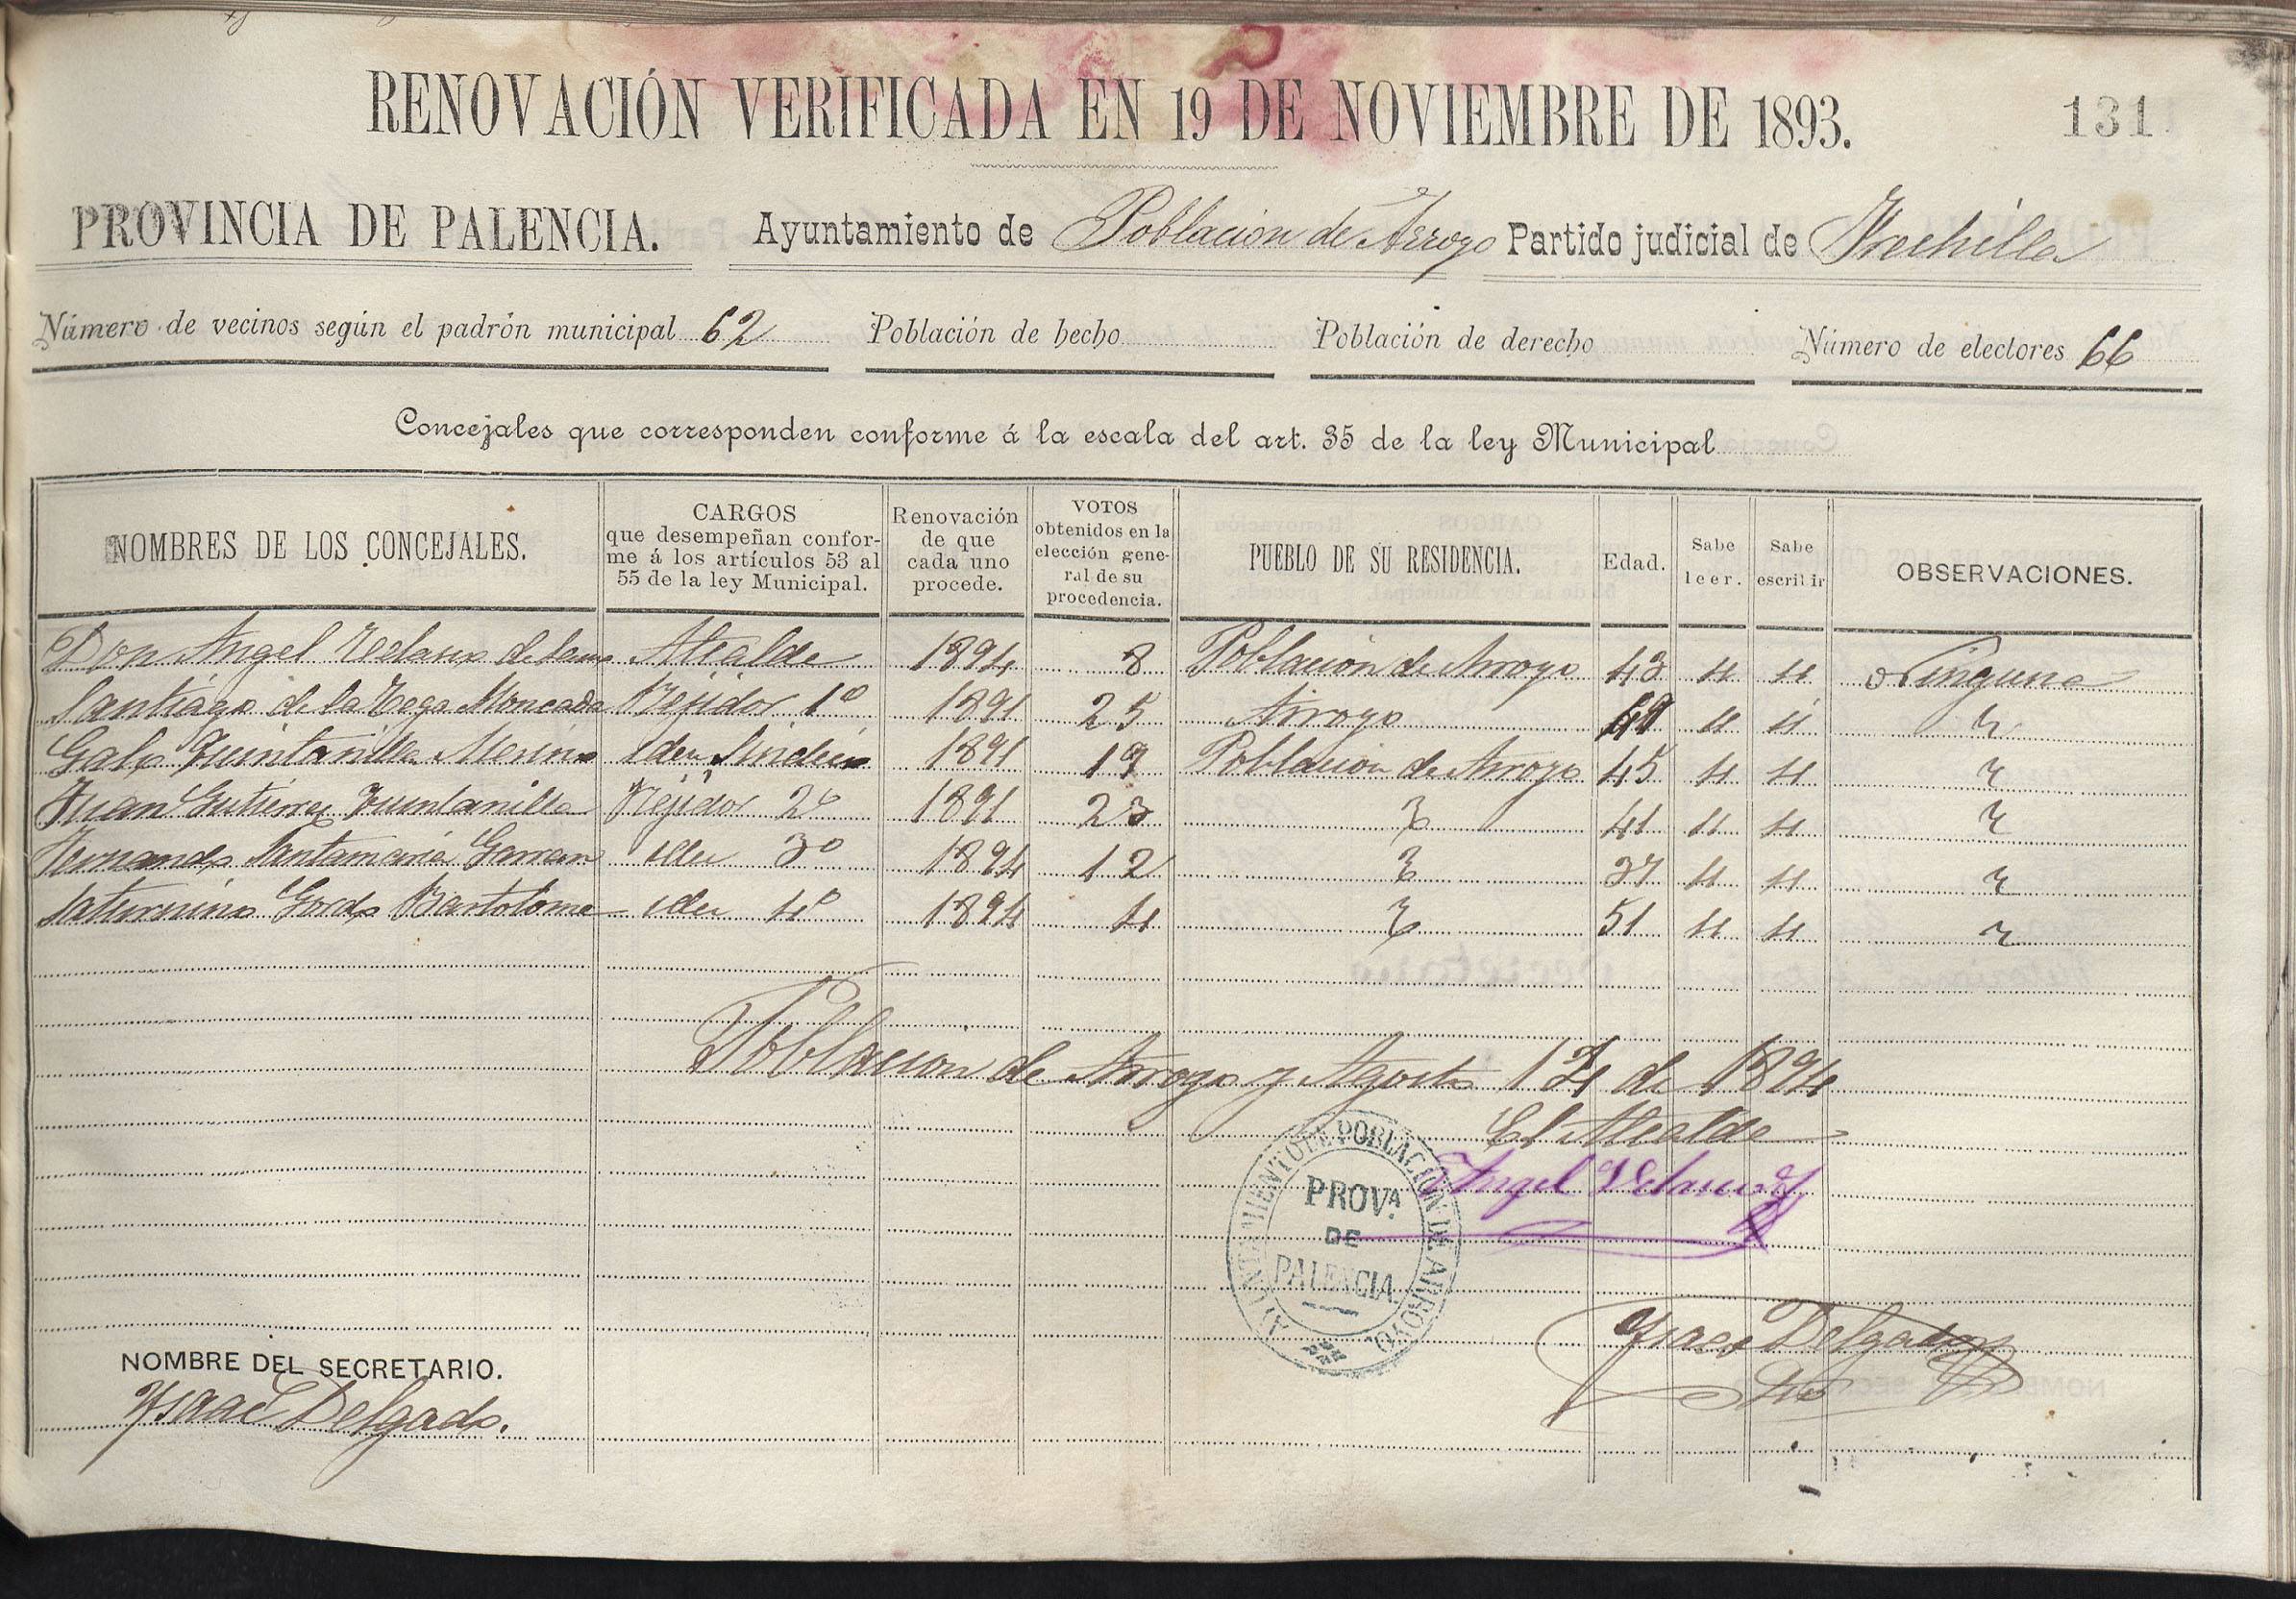 RENOVACIÓN VERIFICADA EN 19 DE NOVIEMBRE DE 1893.
131
PROVINCIA DE PALENCIA. Ayuntamiento de Poblacion de Arroyo Partido judicial de Frechilla
Número de vecinos según el padrón municipal 62 Población de hecho Población de derecho Número de electores 66
Concejales que corresponden conforme á la escala del art. 35 de la ley Municipal
NOMBRES DE LOS CONCEJALES.
CARGOS
que desempeñan confor-
me á los artículos 53 al
55 de la ley Municipal.
Renovación
de que
cada uno
procede.
VOTOS
obtenidos en la
elección gene-
ral de su
procedencia.
PUEBLO DE SU RESIDENCIA.
Edad.
Sabe
leer.
Sabe
escribir
OBSERVACIONES.
Don Angel Alcalde 1894 8 Poblacion de Arroyo 43 " " Ninguna
Santiago de la Vega Moncada Regidor 1º 1891 25 Arroyo " "
Galo Quintanilla Merino Idem Sindico 1891 Poblacion de Arroyo 45 " "
Juan Gutierrez Quintanilla Regidor 2º 1891 23 41 " "
Fernando Santamaria 3º 1894 12 37 " "
Saturnino Gordo Bartolome 4º 1894 4 51 " "
Poblacion de Arroyo y Agosto de 1894
El Alcalde
Angel Velasco
AYUNTAMIENTO DE POBLACION DE ARROYO.
PROVA.
DE
PALENCIA.
Ysaac Delgado
Srio
NOMBRE DEL SECRETARIO.
Ysaac Delgado.